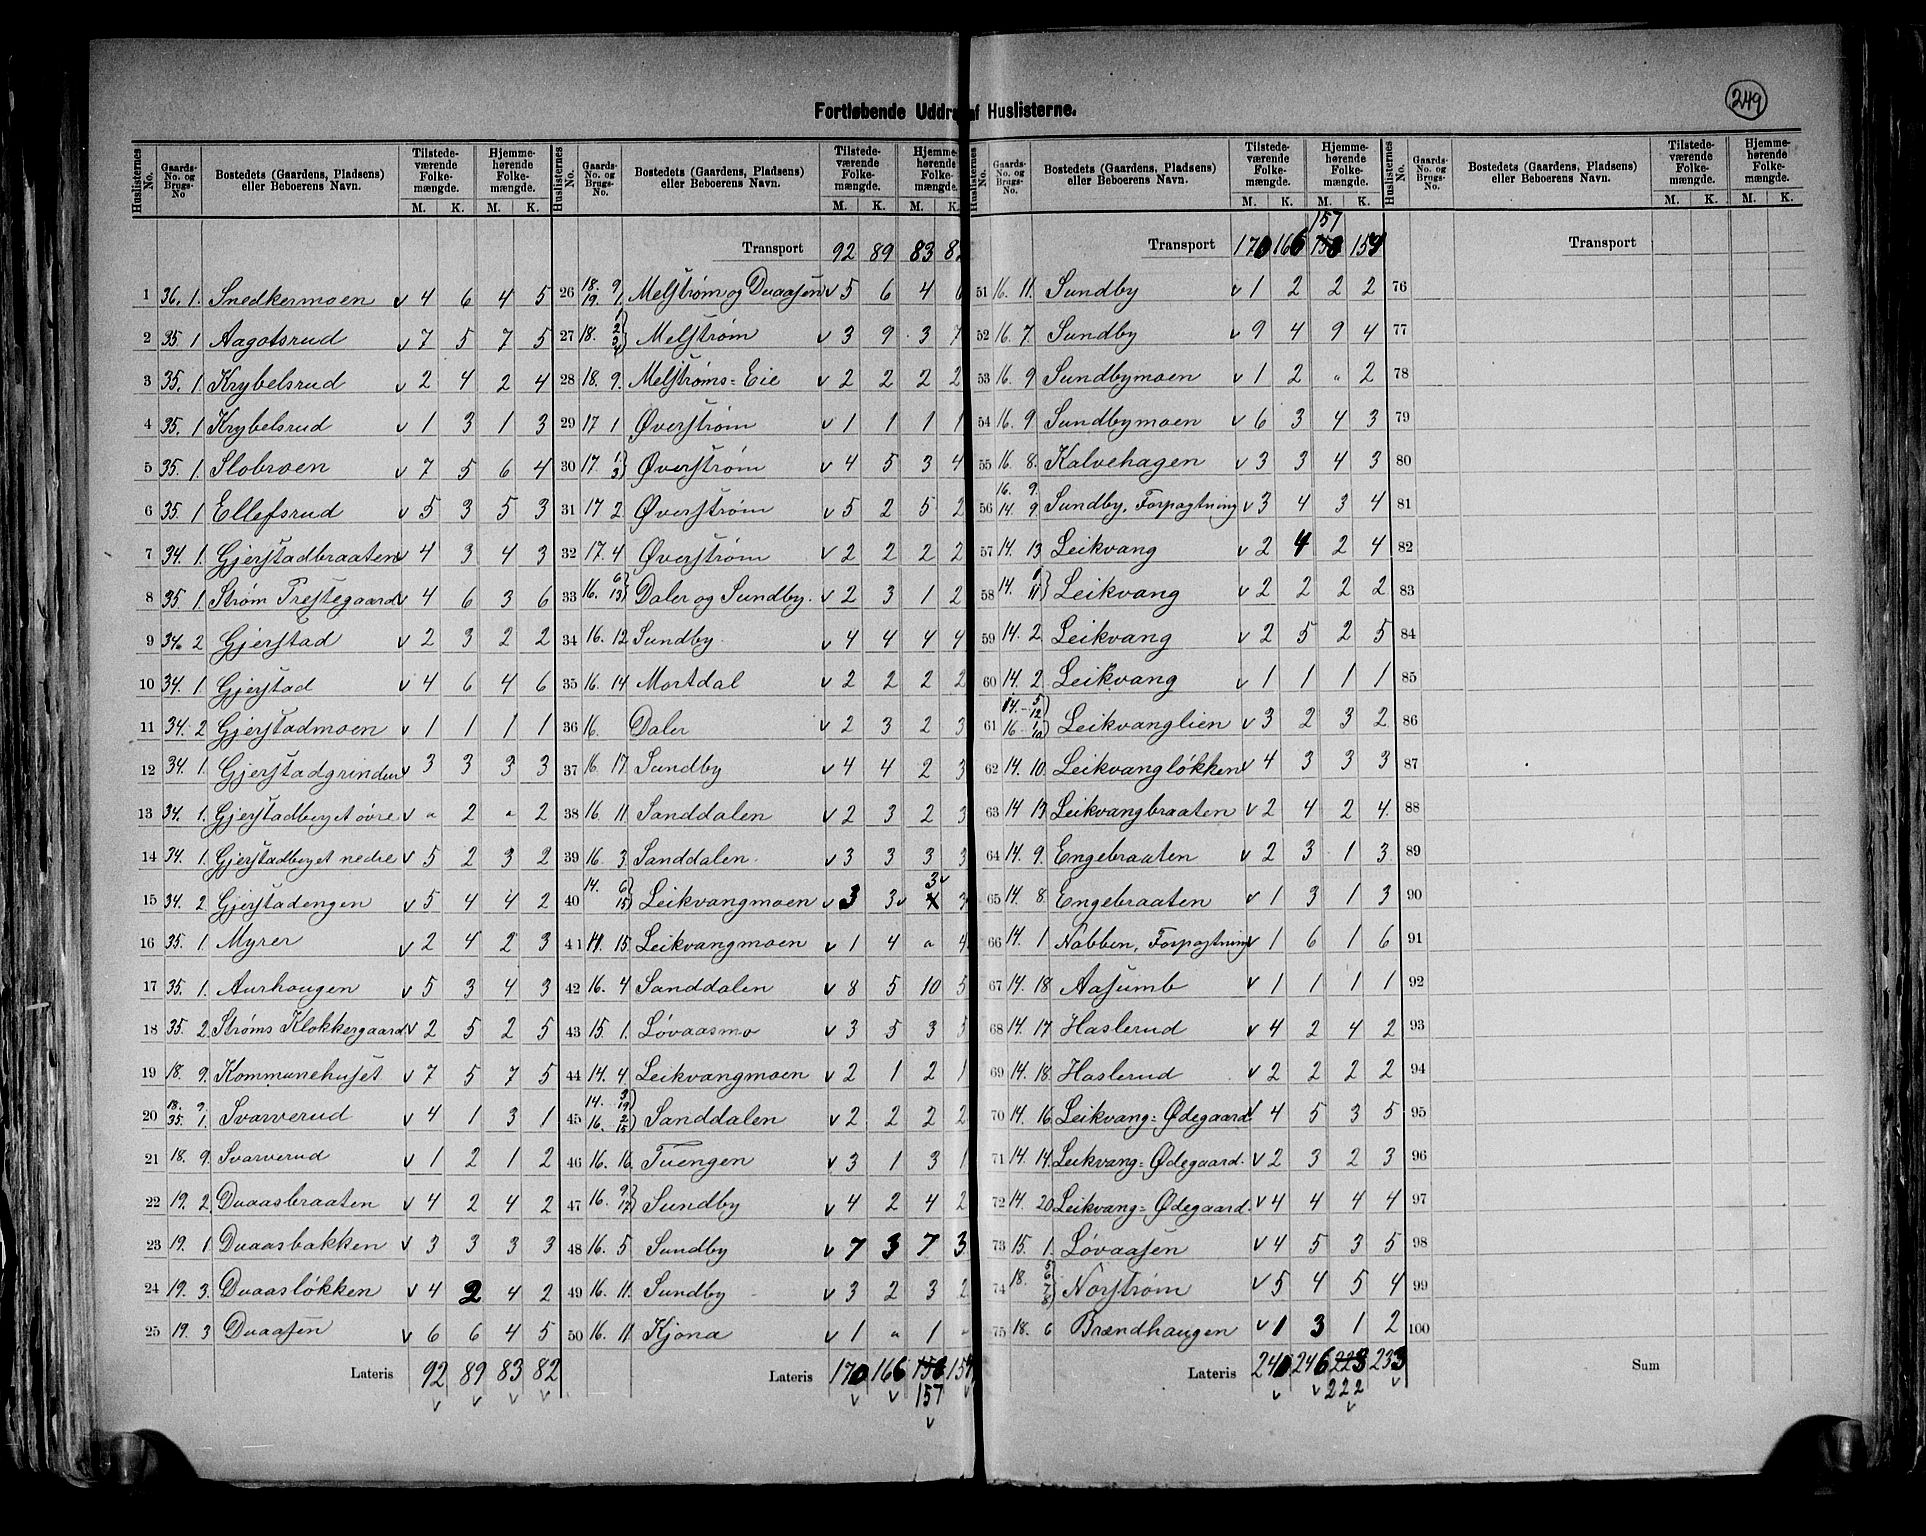 249
Fortløbende Uddrag af Huslisterne.
Huslisternes No. Gaards-No. og Brugs-No Bostedets (Gaardens, Pladsens) eller Beboerens Navn. Tilstedeværende Folkemængde. M. K. Hjemmehørende Folkemængde. M. K.
1 36. 1. Snedkermoen v 4 6 4 5
2 35. 1 Aagotsrud v 7 5 7 5
3 35. 1. Krybelsrud v 2 4 2 4
4 35. 1 Krybelsrud v 1 3 1 3
5 35. 1. Slobroen v 7 5 6 4
6 35. 1 Ellefsrud v 5 3 5 3
7 34. 1. Gjerstadbraaten v 4 3 4 3
8 35. 1. Strøm Prestegaard v 4 6 3 6
9 34. 2 Gjerstad v 2 3 2 2
10 34. 1. Gjerstad v 4 6 4 6
11 34. 2 Gjerstadmoen v 1 1 1 1
12 34. 1. Gjerstadgrinden v 3 3 3 3
13 34. 1. Gjerstadberget øvre v " 2 " 2
14 34. 1. Gjerstadberget nedre v 5 2 3 2
15 34. 2 Gjerstadengen v 5 4 4 2
16 35. 1. Myrer v 2 4 2 3
17 35. 1. Aurhougen v 5 3 4 3
18 35. 2. Strøms Klokkergaard v 2 5 2 5
19 18. 9. Kommunehuset v 7 5 7 5
20 18. 9. 35. 1. Svarverud v 4 1 3 1
21 18. 9. Svarverud v 1 2 1 2
22 19. 2. Duaasbraaten v 4 2 4 2
23 19. 1. Duaasbakken v 3 3 3 3
24 19. 3. Duaasløkken v 4 2 4 2
25 19. 3 Duaasen v 6 6 4 5
Lateris 92 89 83 82
Huslisternes No. Gaards-No. og Brugs-No. Bostedets (Gaardens, Pladsens) eller Beboerens Navn. Tilstedeværende Folkemængde. M. K. Hjemmehørende Folkemængde. M. K.
Transport 92 89 83 82
26 18. 9 19. 1. Melstrøm og Duaasen v 5 6 4 6
27 18. Melstrøm v 3 9 3 7
28 18. 9. Melstrøms=Eie v 2 2 2 2
29 17 1 Øverstrøm v 1 1 1 1
30 17. 1. 3 Øverstrøm v 4 5 3 4
31 17 2 Øverstrøm v 5 2 5 2
32 17. 4 Øverstrøm v 2 2 2 2
33 16. 6 13 Daler og Sundby. v 2 3 1 2
34 16. 12 Sundby. v 4 4 4 4
35 16. 14 Mortdal v 2 2 2 2
36 16. Daler v 2 3 2 3
37 16. 17 Sundby v 4 4 2 3
38 16. 11 Sanddalen v 2 3 2 3
39 16. 3. Sanddalen. v 3 3 3 3
40 14. 6 15 Leikvangmoen v 3 3 v 3 v 3
41 14. 15. Leikvangmoen v 1 4 " 4
42 16. 4 Sanddalen v 8 5 10 5
43 15. 1. Løvaasmo v 3 5 3 5
44 14. 4. Leikvangmoen v 2 1 2 1
45 14. 3 19 16. 2 15 Sanddalen v 2 2 2 2
46 16. 16. Tuengen v 3 1 3 1
47 16. 9 12 Sundby v 4 2 4 2
48 16. 5 Sundby v 7 3 7 3
49 16. 11. Sundby v 3 2 3 2
50 16. 11. Kjona v 1 " 1 "
Lateris 170 166 157
Huslisternes No. Gaards-No. og Brugs-No. Bostedets (Gaardens, Pladsens) eller Beboerens Navn. Tilstedeværende Folkemængde. M. K. Hjemmehørende Folkemængde. M. K.
Transport 170 166 157
51 16. 11. Sundby v 1 2 2 2
52 16. 7 Sundby v 9 4 9 4
53 16. 9 Sundbymoen v 1 2 " 2
54 16. 9 Sundbymoen v 6 3 4 3
55 16. 8. Kalvehagen v 3 3 4 3
56 16. 9. 14. 9 Sundby, Forpagtning v 3 4 3 4
57 14. 13 Leikvang v 2 4 2 4
58 14. 11 Leikvang v 2 2 2 2
59 14. 2. Leikvang v 2 5 2 5
60 14. 2. Leikvang v 1 1 1 1
61 14. 5 12 16. 1 10 Leikvanglien v 3 2 3 2
62 14. 10. Leikvangløkken v 4 3 3 3
63 14. 13 Leikvangbraaten v 2 4 2 4.
64 14. 9. Engebraaten v 2 3 1 3
65 14. 8. Engebraaten v 1 3 1 3
66 14. 1 Nabben, Forpagtning v 1 6 1 6
67 14. 18 Aasumb v 1 1 1 1
68 14. 17 Haslerud v 4 2 4 2
69 14. 18. Haslerud v 2 2 2 2
70 14. 16. Leikvang=Ødegaard v 4 5 3 5
71 14. 14. Leikvang=Ødegaard. v 2 3 2 3
72 14. 20 Leikvang=Ødegaard. v 4 4 4 4
73 15. 1. Løvaasen v 4 5 3 5
74 18. 5 6 7 8 Norstrøm v 5 4 5 4
75 18. 6 Brændhaugen v 1 3 1 2
Lateris 240 246 222 233
Huslisternes No. Gaards-No. og Brugs-No. Bostedets (Gaardens, Pladsens) eller Beboerens Navn. Tilstedeværende Folkemængde. M. K. Hjemmehørende Folkemængde. M. K.
Transport
76
77
78
79
80
81
82
83
84
85
86
87
88
89
90
91
92
93
94
95
96
97
98
99
100
Sum